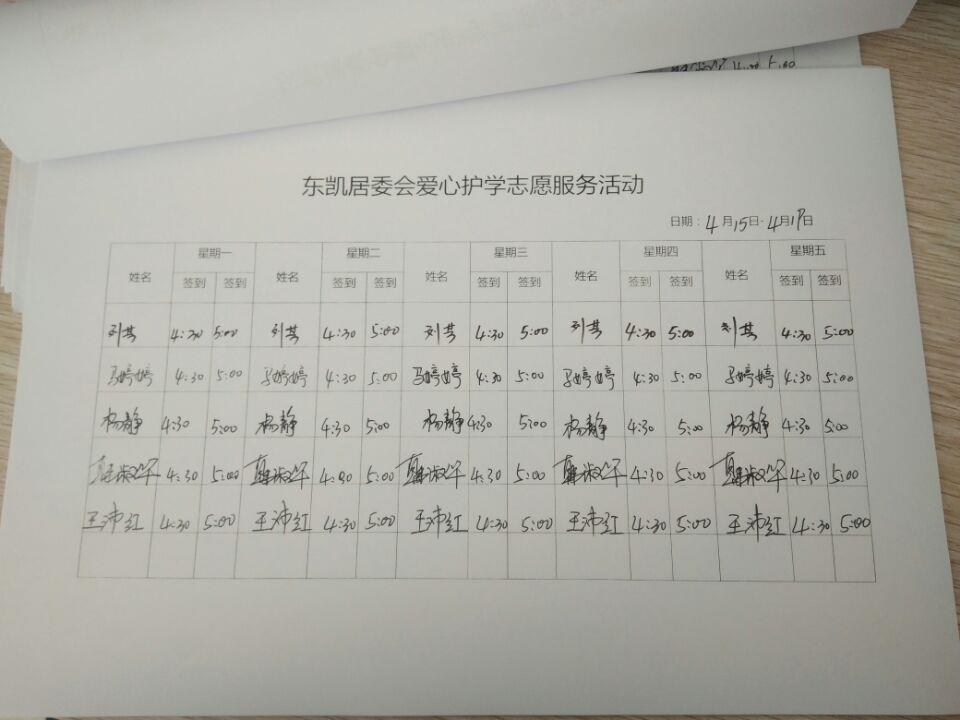 4:30 5:00
东凯居委会爱心护学志愿服务活动
日期：4月15日-4月19日
姓名 星期一 姓名 星期二 姓名 星期三 姓名 星期四 姓名 星期五
签到 签到 签到 签到 签到 签到 签到 签到 签到 签到
刘其 4:30 5:00 刘其 4:30 5:00 刘其 4:30 5:00 刘其 4:30 5:00 刘其 4:30 5:00
马婷婷 4:30 5:00 马婷婷 4:30 5:00 马婷婷 4:30 5:00 马婷婷 4:30 5:00 马婷婷 4:30 5:00
杨静 4:30 5:00 杨静 4:30 5:00 杨静 4:30 5:00 杨静 4:30 5:00 杨静 4:30 5:00
4:30 5:00 4:30 5:00 4:30 5:00 4:30 5:00 4:30 5:00
王沛红 4:30 5:00 王沛红 4:30 5:00 王沛红 4:30 5:00 王沛红 4:30 5:00 王沛红 4:30 5:00